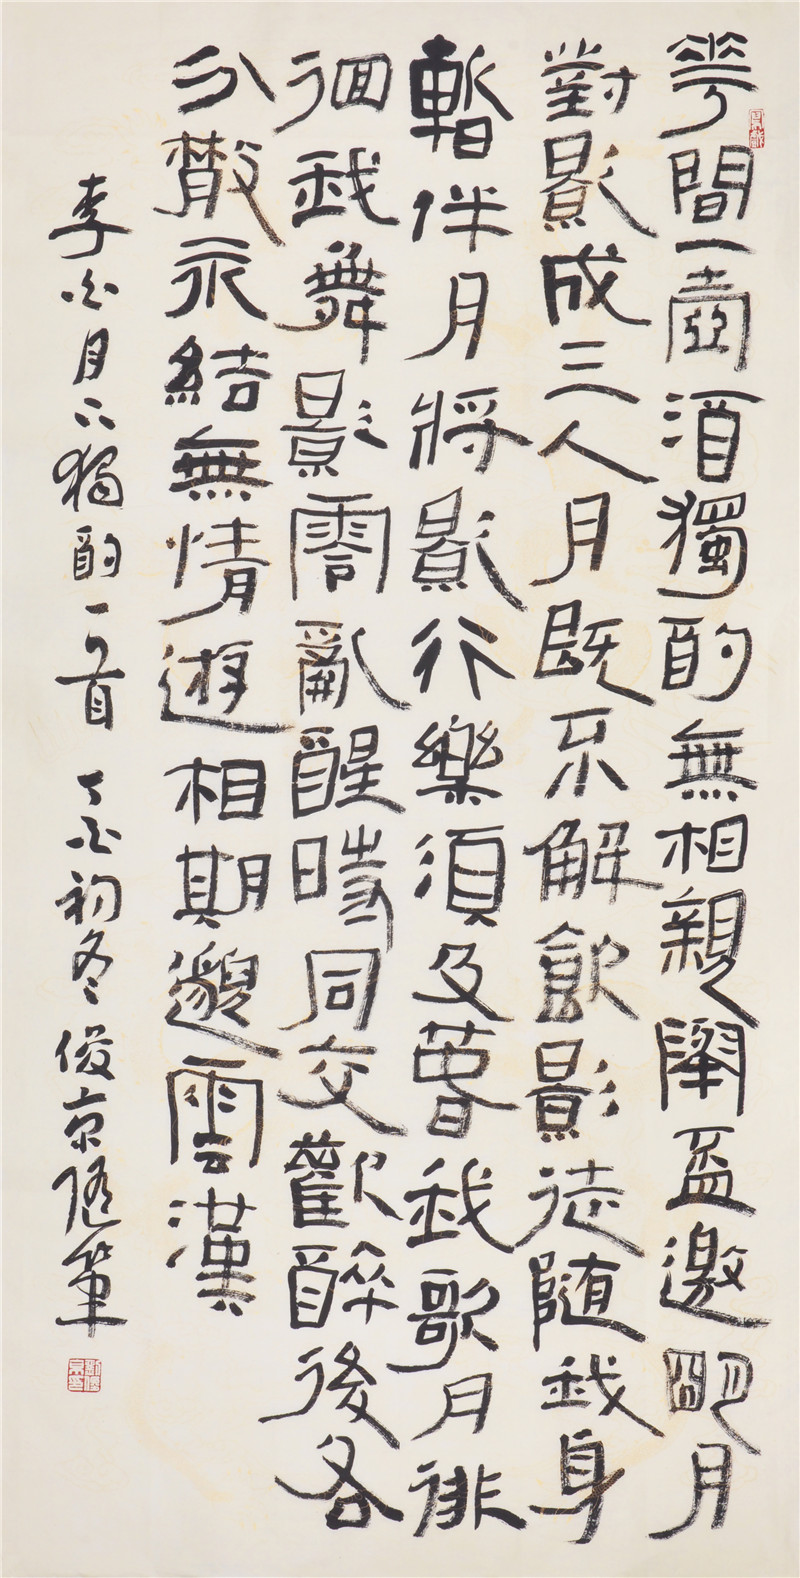 花間一壺酒獨酌無相親舉盃邀明月
對影成三人月既不解飲影徒随我身
暫伴月將影行樂須及春我歌月徘
徊我舞影零亂醒時同交歡醉後各
分散永結無情遊相期邈雲漢
李白月下獨酌一首 丁酉初冬俊京随筆